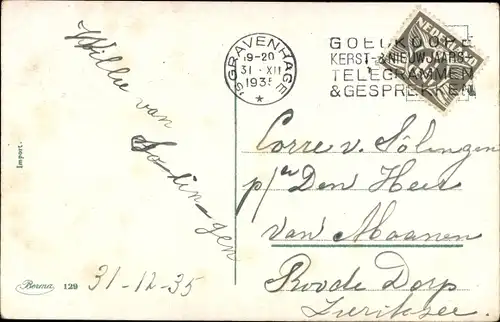 Willie van
Solingen
31-12-35
Import.
Berma 129
'S GRAVENHAGE
19-20
31 XII
1935
GOEDKOOPE
KERST- & NIEUWJAARS-
TELEGRAMMEN
& GESPREKKEN
NEDERLAND
Corre v. Sölingen
p/a Den Heer
van Maanen
Roode Dorp
Zierikzee.